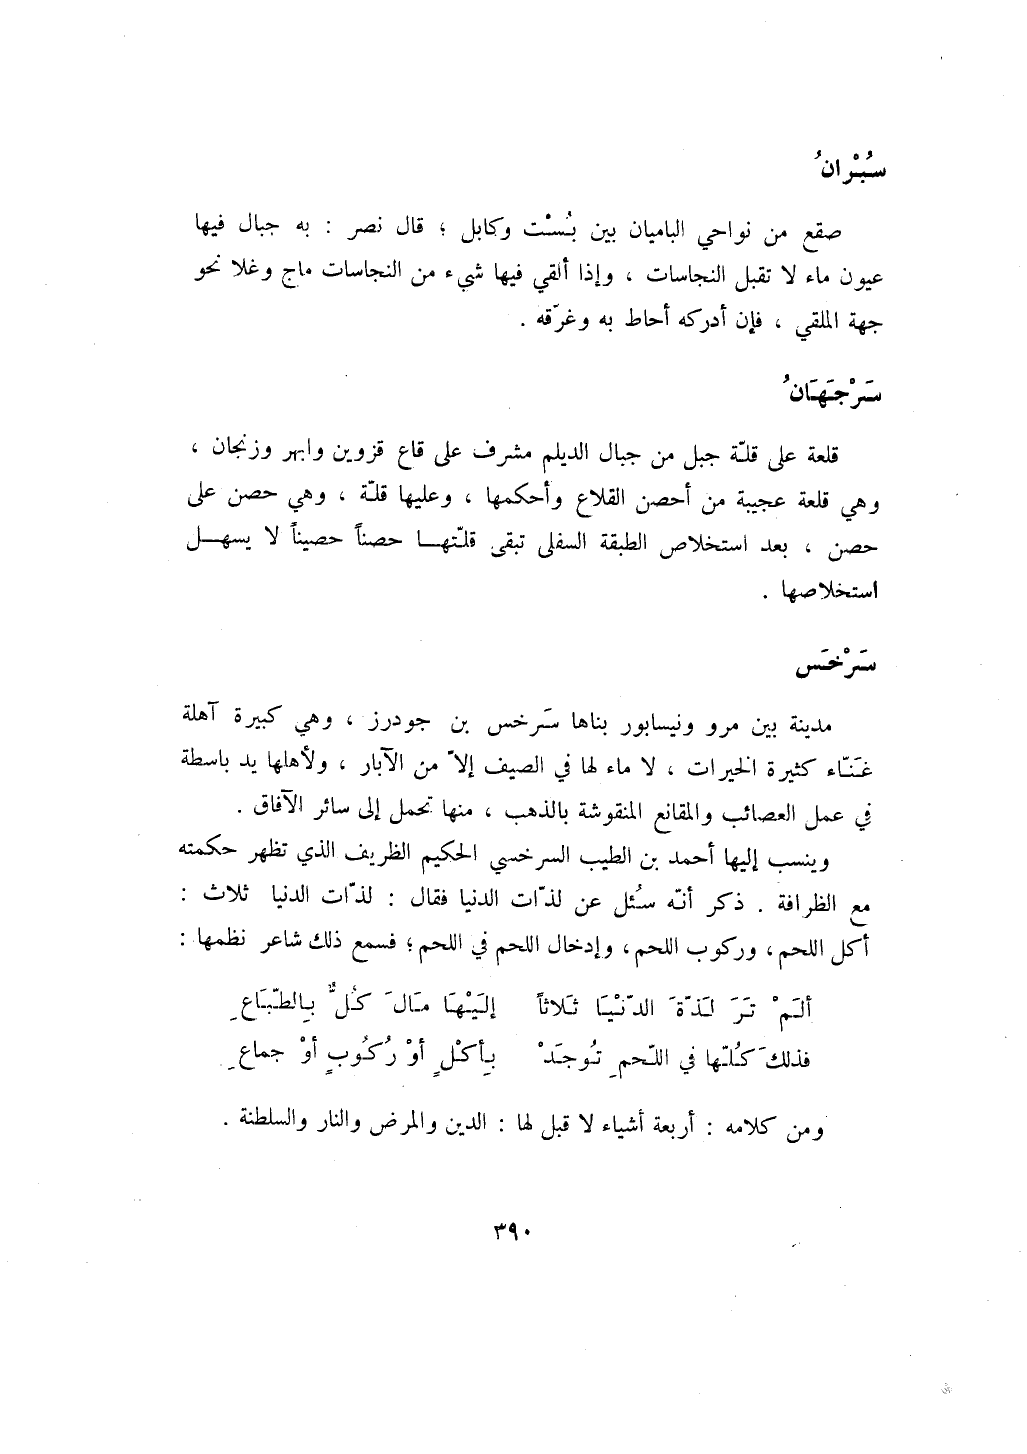 سُبْرانُ
صقع من نواحي الباميان بين بُسْت وكابل ؛ قال نصر : به جبال فيها
عيون ماء لا تقبل النجاسات ، وإذا ألقي فيها شيء من النجاسات ماج وغلا نحو
جهة الملقي ، فإن أدركه أحاط به وغرّقه .
سَرْجَهَانُ
قلعة على قلّة جبل من جبال الديلم مشرف على قاع قزوين وابهر وزنجان ،
وهي قلعة عجيبة من أحصن القلاع وأحكمها ، وعليها قلّة ، وهي حصن على
حصن ، بعد استخلاص الطبقة السفلى تبقى قلّتهـــا حصناً حصيناً لا يسهــل
استخلاصها .
سَرْخَس
مدينة بين مرو ونيسابور بناها سَرخس بن جودرز ، وهي كبيرة آهلة
غَنّاء كثيرة الخيرات ، لا ماء لها في الصيف إلاّ من الآبار ، ولأهلها يد باسطة
في عمل العصائب والمقانع المنقوشة بالذهب ، منها تحمل إلى سائر الآفاق .
وينسب إليها أحمد بن الطيب السرخسي الحكيم الظريف الذي تظهر حكمته
مع الظرافة . ذكر أنّه سُئل عن لذّات الدنيا فقال : لذّات الدنيا ثلاث :
أكل اللحم ، وركوب اللحم ، وإدخال اللحم في اللحم ؛ فسمع ذلك شاعر نظمها :
ألَمْ تَرَ لَذّةَ الدّنْيَا ثَلاثاً إلَيْهَا مَالَ كُلٌّ بِالطّبَاعِ
فذلكَ كُلّها في اللّحمِ تُوجَدْ بِأكْلٍ أوْ رُكُوبٍ أوْ جماعِ
ومن كلامه : أربعة أشياء لا قبل لها : الدين والمرض والنار والسلطنة .
٣٩٠